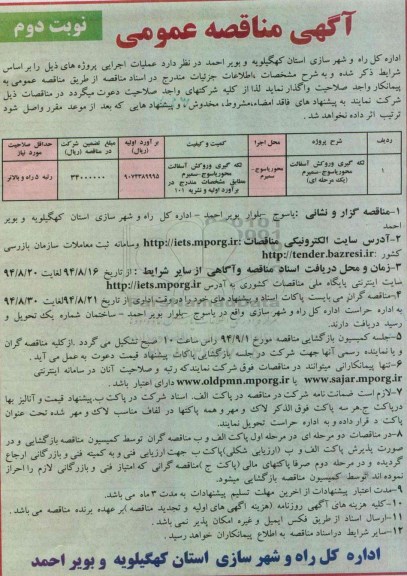 آگهی مناقصه عمومی
نوبت دوم
اداره کل راه و شهر سازی استان کهگیلویه و بویر احمد در نظر دارد عملیات اجرایی پروژه های ذیل را بر اساس
شرایط ذکر شده و به شرح مشخصات باطلاعات جزئیات مندرج در اسناد مناقصه از طریق مناقصه عمومی به
پیمانکار واجد صلاحیت واگذار نماید لذا از کلیه شرکتهای واجد صلاحیت دعوت میگردد در مناقصات ذیل
شرکت نمایند به پیشنهاد های فاقد امضاء،مشروط، مخدوش و پیشنهاد هایی که بعد از موعد مقرر واصل شود
ترتیب اثر داده نخواهد شد.
ردیف شرح پروژه محل اجرا کمیت و کیفیت بر آورد اولیه (ریال) مبلغ تضمین شرکت در مناقصه (ریال) حداقل صلاحیت مورد نیاز
۱ لکه گیری وروکش آسفالت محوریاسوج-سمیرم (یک مرحله ای) محوریاسوج-سمیرم لکه گیری وروکش آسفالت محوریاسوج-سمیرم مطابق مشخصات مندرج در برآورد اولیه و نشریه ۱۰۱ ۹۰۷۳۳۸۹۹۹۵ ۳۴۰۰۰۰۰۰۰ رتبه ۵ راه و بالاتر
۱-مناقصه گزار و نشانی :یاسوج –بلوار بویر احمد – اداره کل راه و شهر سازی استان کهگیلویه و بویر
احمد
۲-آدرس سایت الکترونیکی مناقصات :http://iets.mporg.ir وسامانه ثبت معاملات سازمان بازرسی
کشور :http://tender.bazresi.ir
۳-زمان و محل دریافت اسناد مناقصه وآگاهی از سایر شرایط : از تاریخ ۹۴/۸/۱۶ لغایت ۹۴/۸/۲۰
سایت اینترنتی پایگاه ملی مناقصات کشوری به آدرس http://iets.mporg.ir
۴-مناقصه گران می بایست پاکات اسناد و پیشنهاد های خود را در وقت اداری از تاریخ ۹۴/۸/۲۱ لغایت ۹۴/۸/۳۰
به اداره حراست اداره کل راه و شهر سازی واقع در یاسوج –بلوار بویر احمد – ساختمان شماره یک تحویل و
رسید دریافت دارند.
۵-جلسه کمیسیون بازگشایی مناقصه مورخ ۹۴/۹/۱ راس ساعت ۱۰ صبح تشکیل می گردد .از کلیه مناقصه گران
و یا نماینده رسمی آنها جهت شرکت در جلسه بازگشایی پاکات پیشنهاد قیمت دعوت به عمل می آید .
۶-تنها پیمانکارانی میتوانند در مناقصات فوق شرکت نمایند که رتبه و صلاحیت آنان در سامانه اینترنتی
www.sajar.mporg.ir یا www.oldpmn.mporg.ir دارای اعتبار باشد .
۷-لازم است ضمانت نامه شرکت در مناقصه در پاکت الف، اسناد شرکت در پاکت ب، پیشنهاد قیمت و آنالیز بها
در پاکت ج، هر سه پاکت فوق الذکر لاک و مهر و همه پاکتها در لفاف مناسب لاک و مهر شده تحت عنوان
پاکت د قرار داده و به اداره حراست تحویل نمایند.
۸-در مناقصات دو مرحله ای در مرحله اول پاکت الف و ب مناقصه گران توسط کمیسیون مناقصه بازگشایی و در
صورت پذیرش پاکت الف و ب (ارزیابی شکلی)پاکت ب جهت ارزیابی فنی و به کمیته فنی و بازرگانی ارجاع
گردیده و در مرحله دوم صرفا پاکتهای مالی (پاکت ج )مناقصه گرانی که امتیاز فنی و بازرگانی لازم را احراز
نموده اند توسط کمیسیون مناقصه بازگشایی میشود.
۹-مدت اعتبار پیشنهادات از آخرین مهلت تسلیم پیشنهادات به مدت ۳ ماه می باشد.
۱۰-کلیه هزینه های آگهی روزنامه (هزینه آگهی های اولیه و تجدید مناقصه )بر عهده برنده مناقصه می باشد .
۱۱-ارسال اسناد از طریق فکس ایمیل و غیره امکان پذیر نمی باشد.
۱۲-سایر شرایط در اسناد مناقصه به اطلاع پیمانکاران خواهد رسید .
اداره کل راه و شهر سازی استان کهگیلویه و بویر احمد